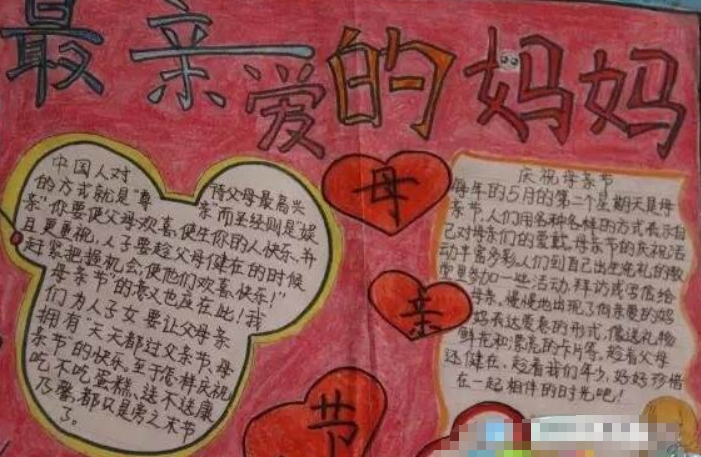 最亲爱的妈妈
中国人对 待父母最高兴
的方式就是“尊 亲”而圣经则是“娱
亲”你要使父母欢喜，使生你的人快乐，并
且更重视，人子要趁父母健在的时候
赶紧把握机会，使他们欢喜、快乐！”
母亲节的意义也在此！我
们为人子女要让父母亲
拥有天天都过父亲节、母
亲节的快乐，至于怎样庆祝
吃不吃蛋糕、送不送康
乃馨，都只是旁之末节
了。
母
亲
节
庆祝母亲节
每年的5月的第二个星期天是母
亲节，人们用各种各样的方式表示自
己对母亲们的爱戴，母亲节的庆祝活
动丰富多彩，人们到自己出生洗礼的教
堂里参加一些活动，拜访或写信给
母亲。慢慢地出现了向亲爱的妈
妈表达爱意的形式，像送礼物
鲜花和漂亮的卡片等，趁着父母
还健在，趁着我们年少，好好珍惜
在一起相伴的时光吧！